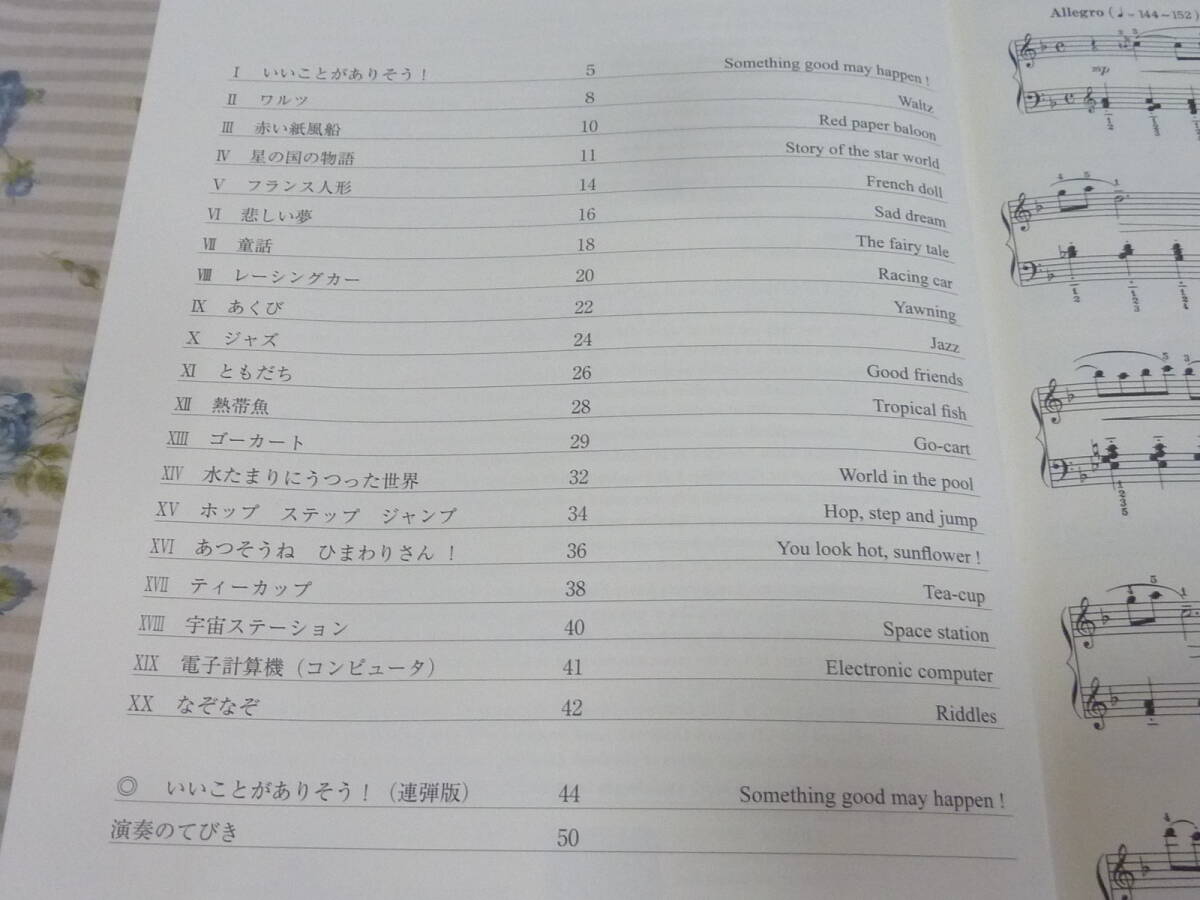 Ⅰ いいことがありそう！ 5 Something good may happen !
Ⅱ ワルツ 8 Waltz
Ⅲ 赤い紙風船 10 Red paper baloon
Ⅳ 星の国の物語 11 Story of the star world
Ⅴ フランス人形 14 French doll
Ⅵ 悲しい夢 16 Sad dream
Ⅶ 童話 18 The fairy tale
Ⅷ レーシングカー 20 Racing car
Ⅸ あくび 22 Yawning
Ⅹ ジャズ 24 Jazz
Ⅺ ともだち 26 Good friends
Ⅻ 熱帯魚 28 Tropical fish
XIII ゴーカート 29 Go-cart
XIV 水たまりにうつった世界 32 World in the pool
XV ホップ ステップ ジャンプ 34 Hop, step and jump
XVI あつそうね ひまわりさん！ 36 You look hot, sunflower !
XVII ティーカップ 38 Tea-cup
XVIII 宇宙ステーション 40 Space station
XIX 電子計算機（コンピュータ） 41 Electronic computer
XX なぞなぞ 42 Riddles
◎ いいことがありそう！（連弾版） 44 Something good may happen !
演奏のてびき 50
Allegro (♩=144~152)
mp